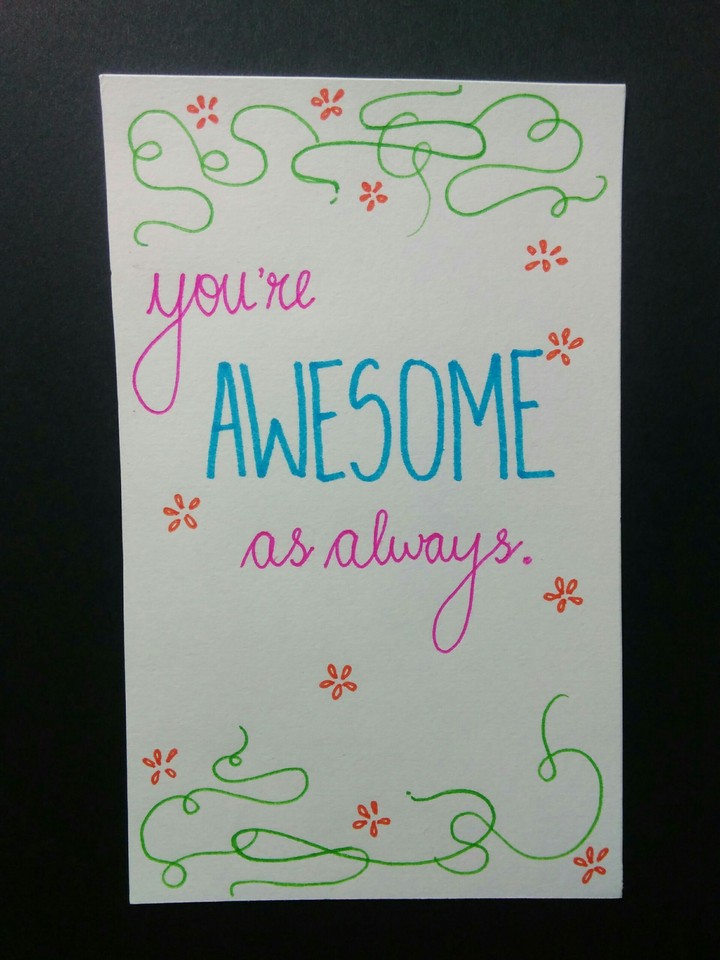 you're
AWESOME
as always.